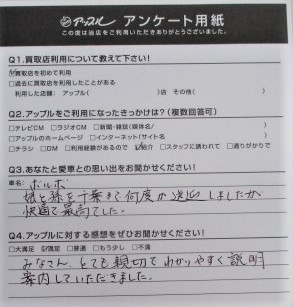 アップル アンケート用紙
この度は当店をご利用いただきありがとうございました。
Q1.買取店利用について教えて下さい!
☑買取店を初めて利用
□過去に買取店を利用したことがある
利用した店舗: アップル( )店 その他( )
Q2.アップルをご利用になったきっかけは?(複数回答可)
□テレビCM □ラジオCM □新聞・雑誌(媒体名/ )
□アップルのホームページ □インターネット(サイト名 )
□チラシ □DM □利用経験があるので ☑紹介 □スタッフに誘われて □通りがかりで
Q3.あなたと愛車との思い出をお聞かせください!
車名: ボルボ
娘と孫を千葉まで何度か送迎しましたが
快適で最高でした。
Q4.アップルに対する感想をぜひお聞かせください!
□大満足 ☑満足 □普通 □もう少し □不満
みなさん、とても親切でわかりやすく説明
案内していただきました。